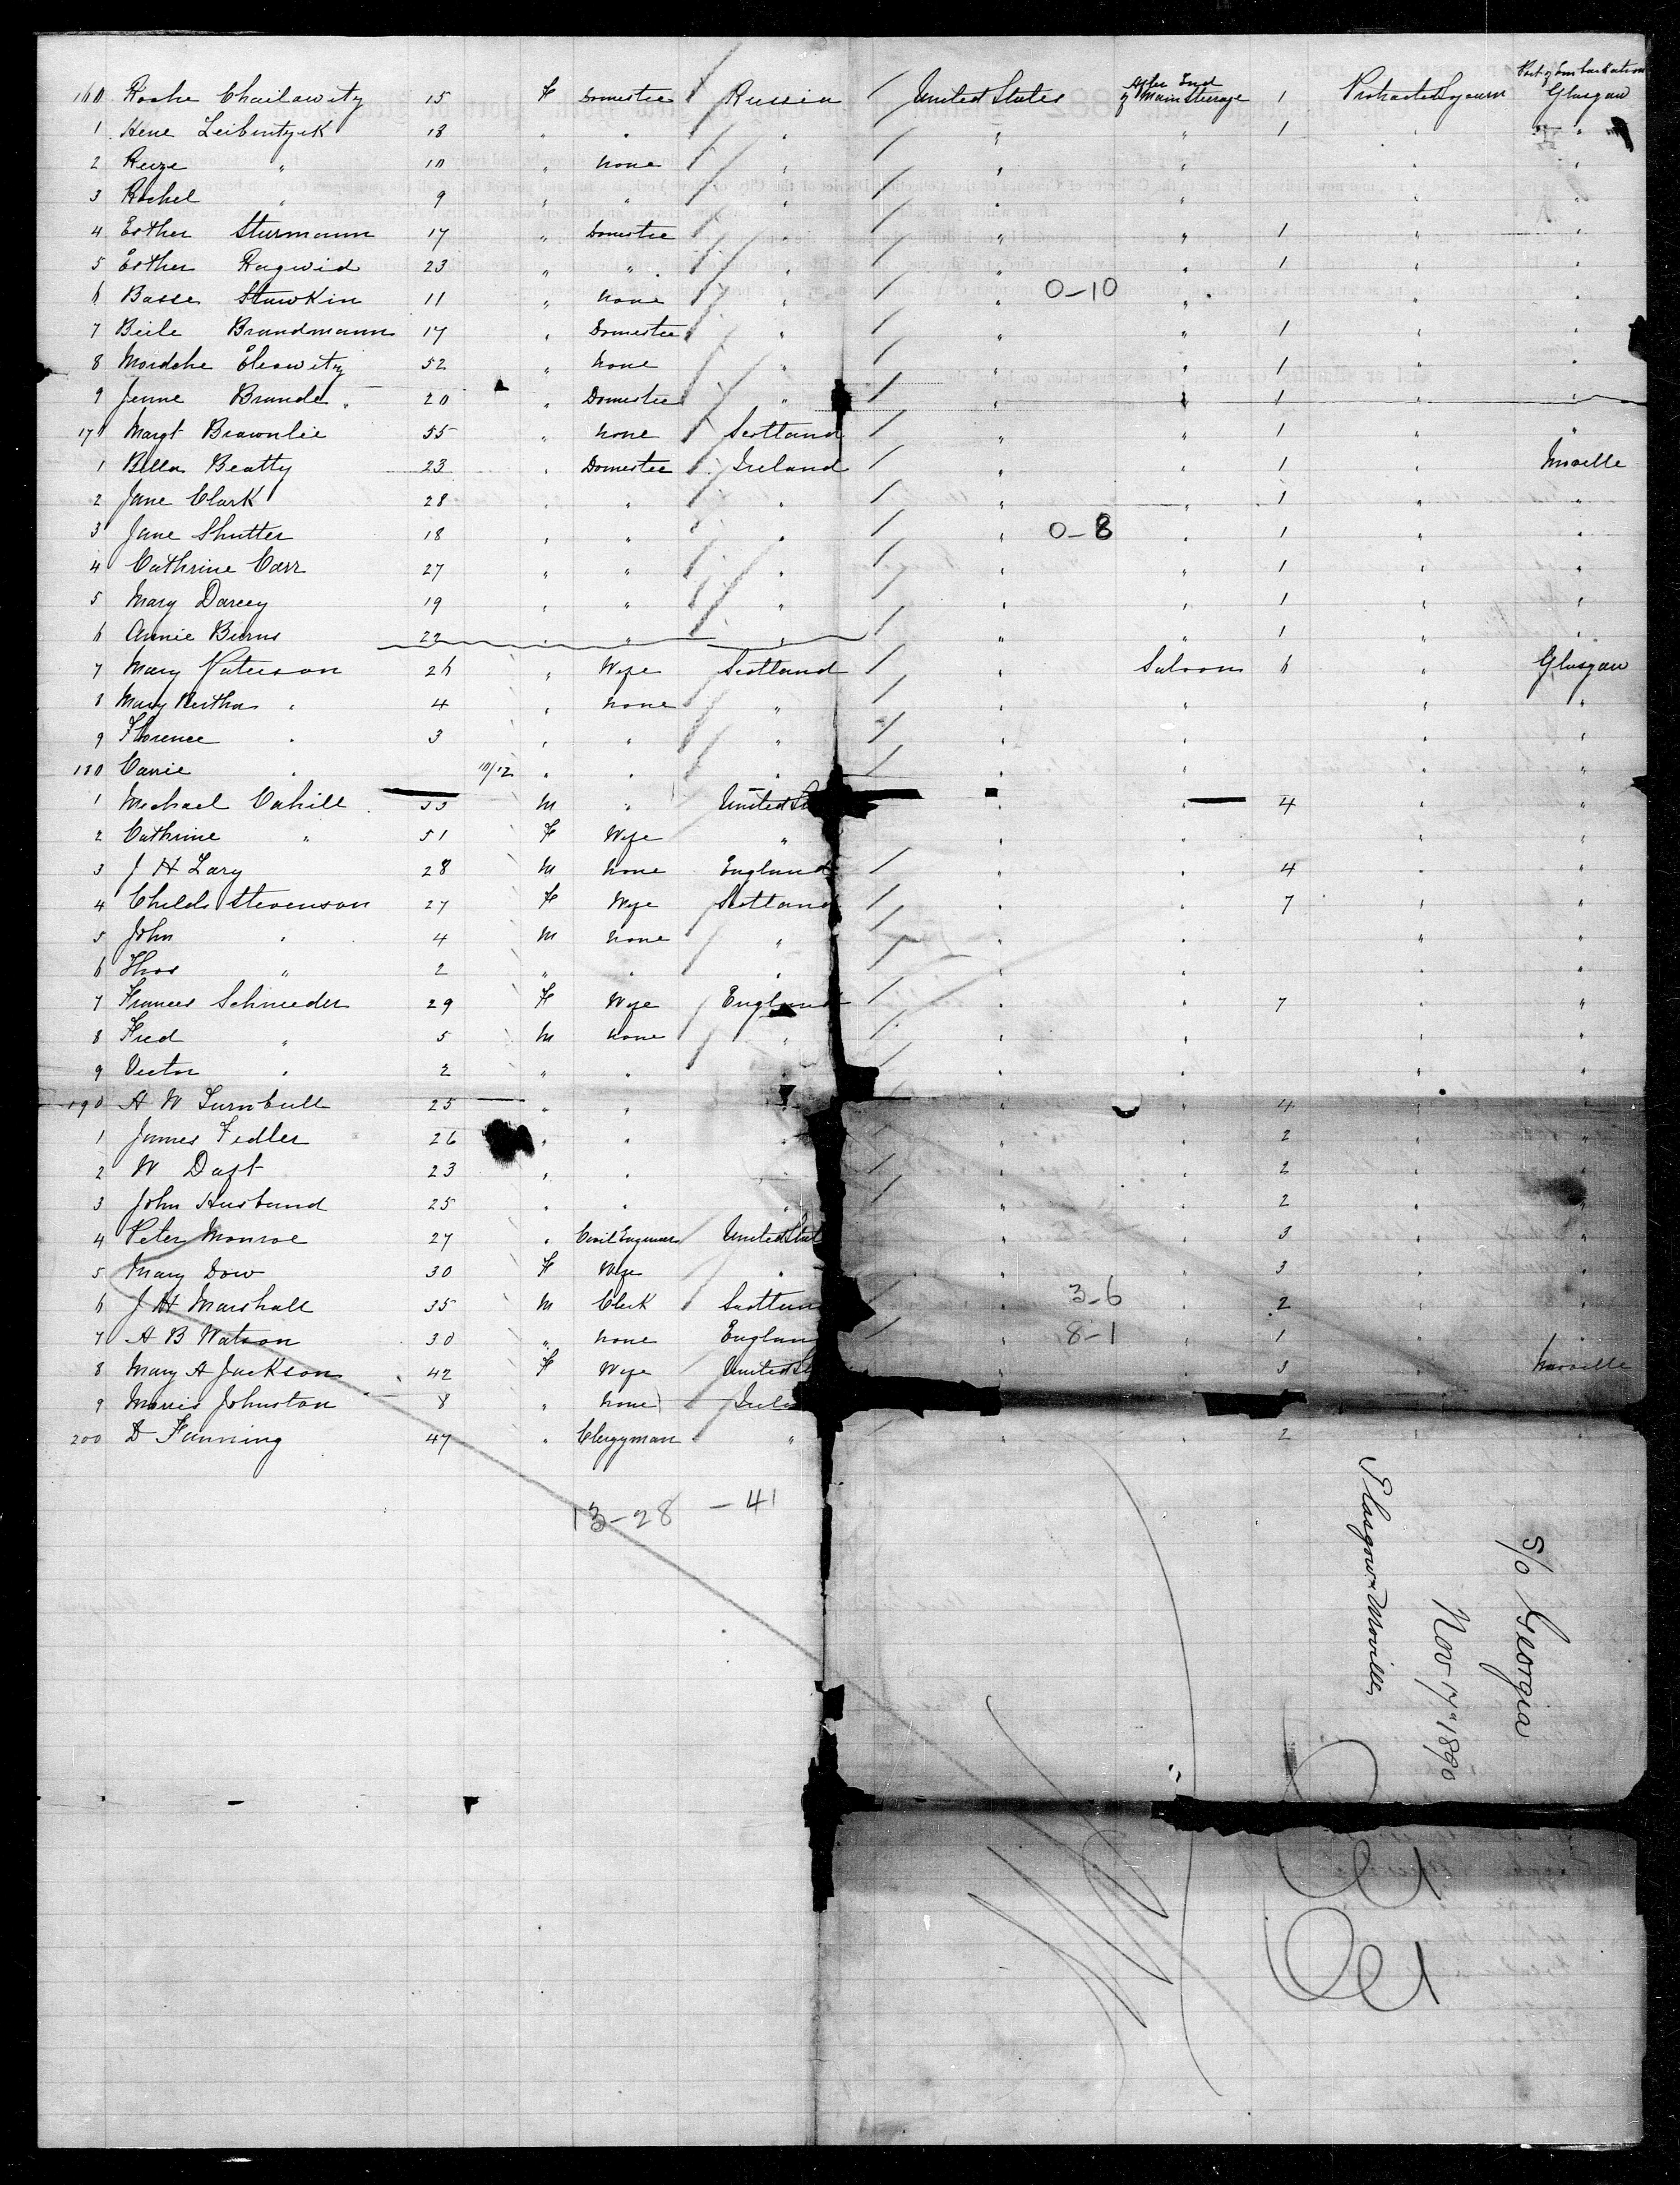 Port of Embarkation
160 Roche Chailawitz 15 F Domestic Russia United States After End of Main Steerage 1 Protracted Sojourn Glasgow
1 Hene Leibentzyk 18 " " " " " 1 " "
2 Reize " 10 " None " " " " "
3 Rachel " 9 " " " " " " "
4 Esther Sturmann 17 " Domestic " " " 1 " "
5 Esther Ragwid 23 " " " " " 1 " "
6 Basse Stawkin 11 " None " " 0-10 " " "
7 Beile Brandmann 17 " Domestic " " " 1 " "
8 Mordche Elcowitz 52 " None " " " 1 " "
9 Jenne Brande 20 " Domestic " " " 1 " "
170 Margt Brownlie 55 " None Scotland " " 1 " "
1 Bella Beatty 23 " Domestic Ireland " " 1 " Moville
2 Jane Clark 28 " " " " " 1 " "
3 Jane Shutter 18 " " " " 0-8 " 1 " "
4 Cathrine Carr 27 " " " " " 1 " "
5 Mary Darcey 19 " " " " " 1 " "
6 Annie Burns 22 " " " " " 1 " "
7 Mary Paterson 26 " Wife Scotland " Saloon 6 " Glasgow
8 Mary Bertha " 4 " None " " " " "
9 Florence " 3 " " " " " "
180 Carrie " 10/12 " " " " "
1 Michael Cahill 53 M " United St " " 4 " "
2 Cathrine " 51 F Wife " " " " "
3 J H Lary 28 M None England " " 4 " "
4 Childs Stevenson 27 F Wife Scotland " " 7 " "
5 John " 4 M None " " " " "
6 Thos " 2 " " " " " " "
7 Frances Schneeder 29 F Wife England " " 7 " "
8 Fred " 5 M None " " " " "
9 Victor " 2 " " " " " " "
190 A W Turnbull 25 " " " " " 4 " "
1 James Fidler 26 " " " " " 2 " "
2 W Daft 23 " " " " " 2 " "
3 John Husband 25 " " " " " 2 " "
4 Peter Monroe 27 " Civil Engineer United Stat " " 3 " "
5 Mary Dow 30 F Wife " " " 3 " "
6 J H Marshall 35 M Clerk Scotlan " 3-6 " 2 " "
7 A B Watson 30 " None Englan " 8-1 " 1 " "
8 Mary A Jackson 42 F Wife United St " " 3 " Moville
9 Morris Johnston 8 " None Irela
200 D Fanning 47 " Clergyman " " " 2 " "
13-28 -41
S/o Georgia
Nov 17th 1890
Glasgow & Moville